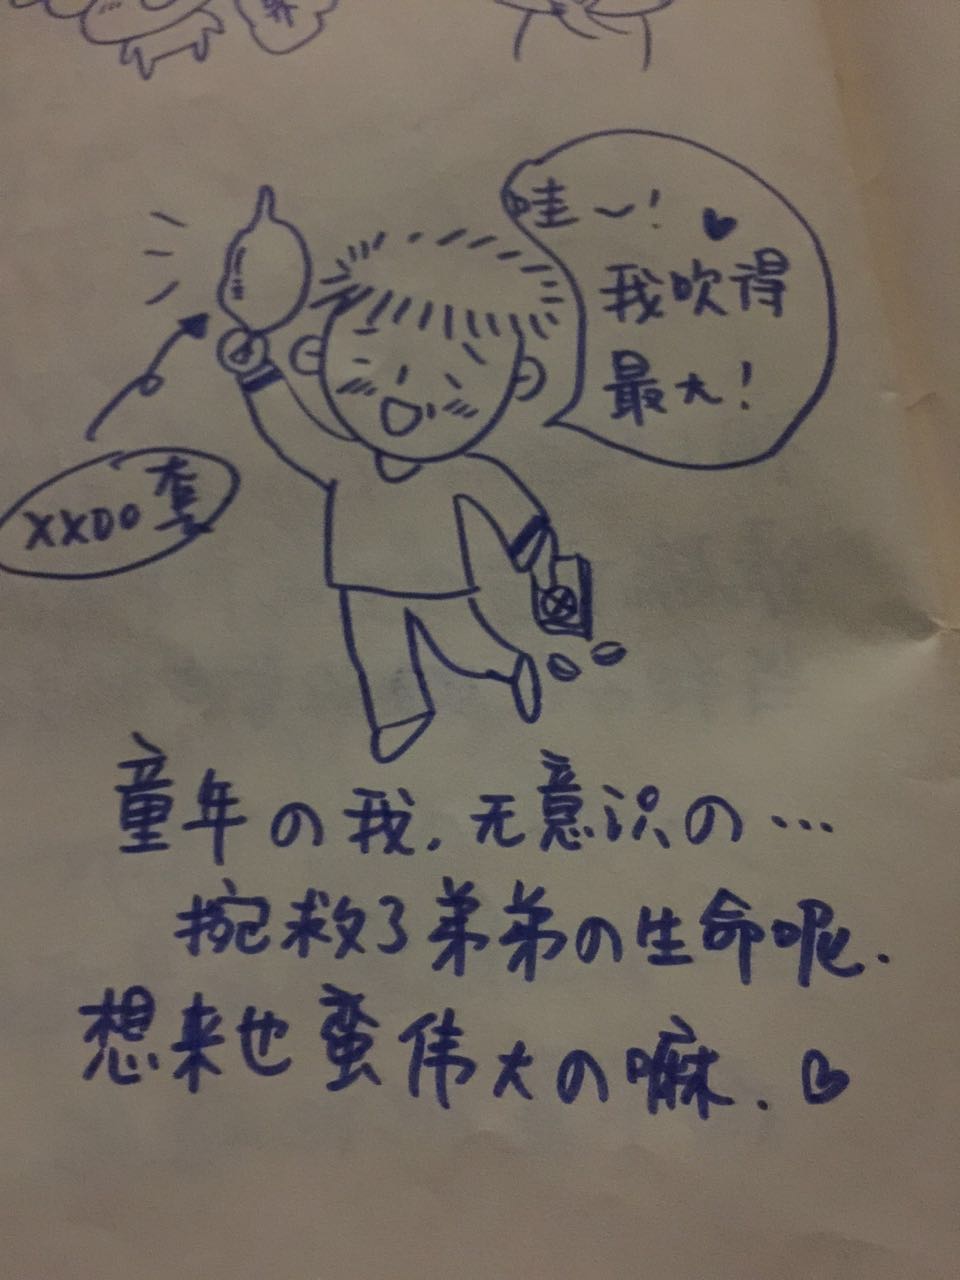 哇~!
我吹得
最大!
XXOO套
童年の我,无意识の…
挽救了弟弟の生命呢.
想来也蛮伟大の嘛.